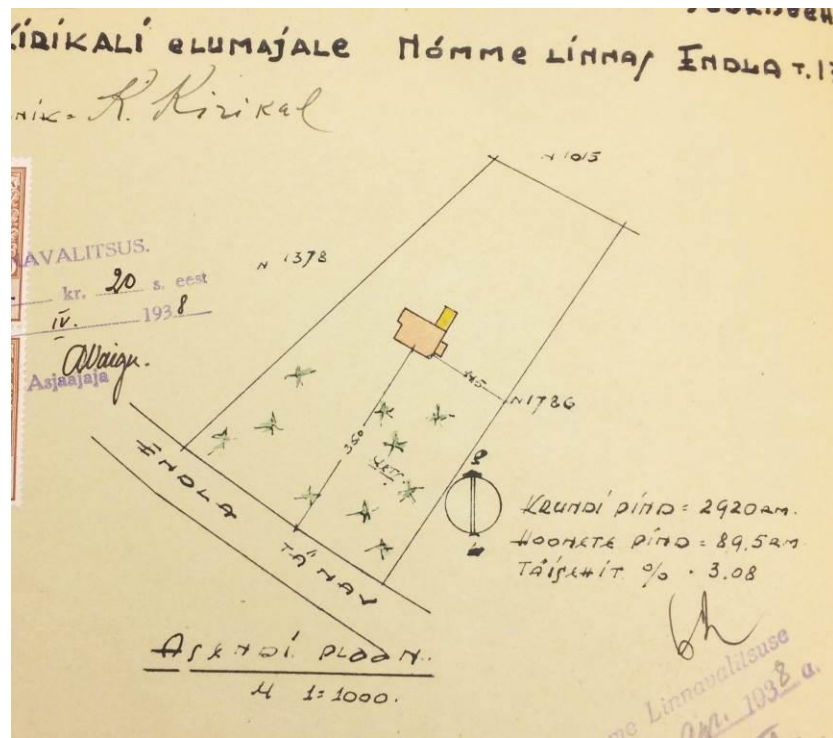 KIRIKALI ELUMAJALE NÕMME LINNAS ENDLA T. 17
NIK. K. Kirikal
N 1015
AVALITSUS.
N 1378
kr. 20 s. eest
IV. 1938
Asjaajaja
N 1786
350
ENDLA TÄNAV
KRUNDI PIND = 2920 RM.
HOONETE PIND = 89,5 RM
TÄISEHIT % . 3.08
ASENDI PLAAN.
M 1:1000.
me Linnavalitsuse
apr. 1938 a.